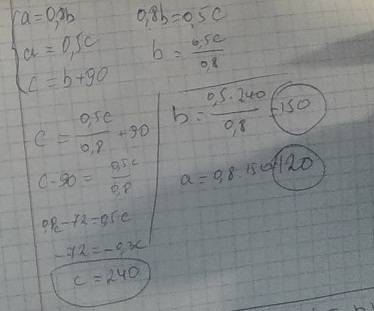 a=0,8b
a=0,5c
c=b+90
0,8b=0,5c
b=0,5c/0,8
c=0,5c/0,8+90
c-90=0,5c/0,8
0,8c-72=0,5c
-72=-0,3c
c=240
b=0,5·240/0,8=150
a=0,8·150=120